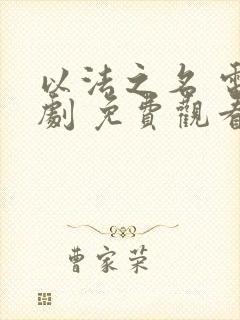 以法之名 電
劇 免費觀看
曹家荣